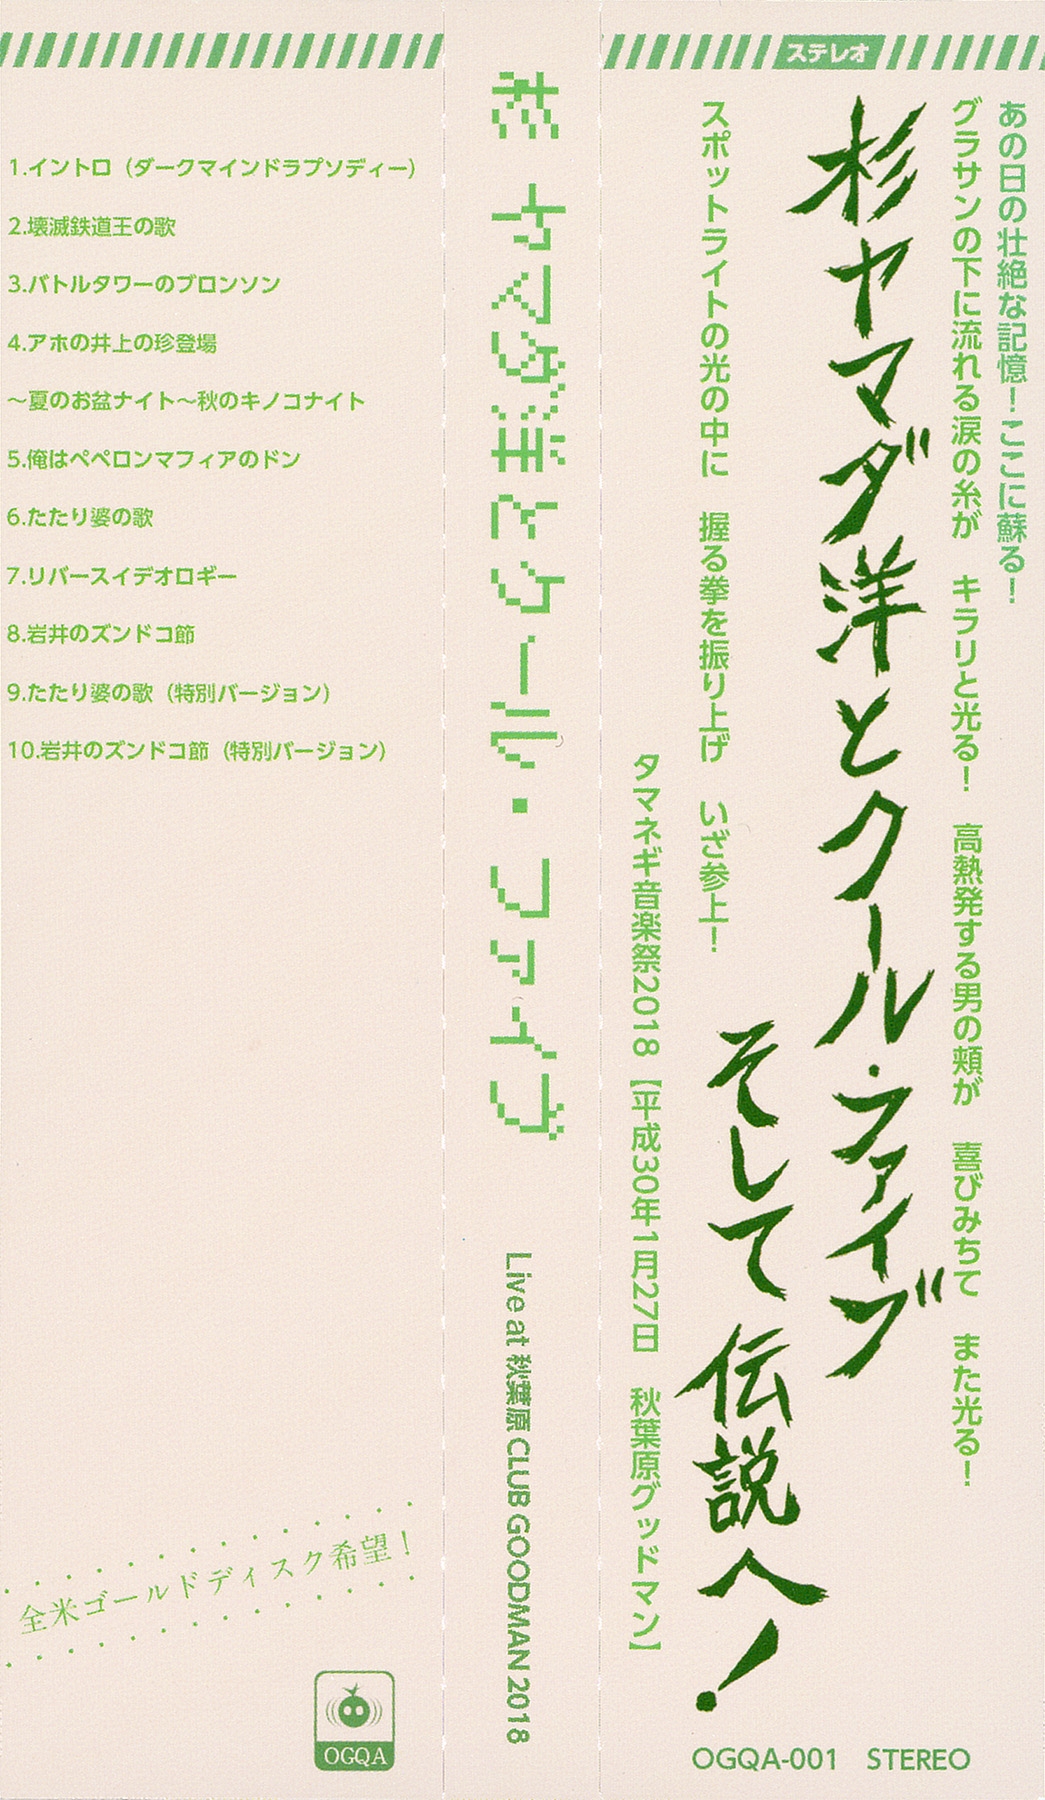 ステレオ
あの日の壮絶な記憶！ここに蘇る！
グラサンの下に流れる涙の糸が　キラリと光る！　高熱発する男の頬が　喜びみちて　また光る！
杉ヤマダ洋とクール・ファイブ
そして伝説へ！
スポットライトの光の中に　握る拳を振り上げ　いざ参上！
タマネギ音楽祭2018【平成30年1月27日　秋葉原グッドマン】
OGQA-001　STEREO
杉ヤマダ洋とクール・ファイブ
Live at 秋葉原 CLUB GOODMAN 2018
1.イントロ（ダークマインドラプソディー）
2.壊滅鉄道王の歌
3.バトルタワーのブロンソン
4.アホの井上の珍登場
～夏のお盆ナイト～秋のキノコナイト
5.俺はペペロンマフィアのドン
6.たたり婆の歌
7.リバースイデオロギー
8.岩井のズンドコ節
9.たたり婆の歌（特別バージョン）
10.岩井のズンドコ節（特別バージョン）
全米ゴールドディスク希望！
OGQA